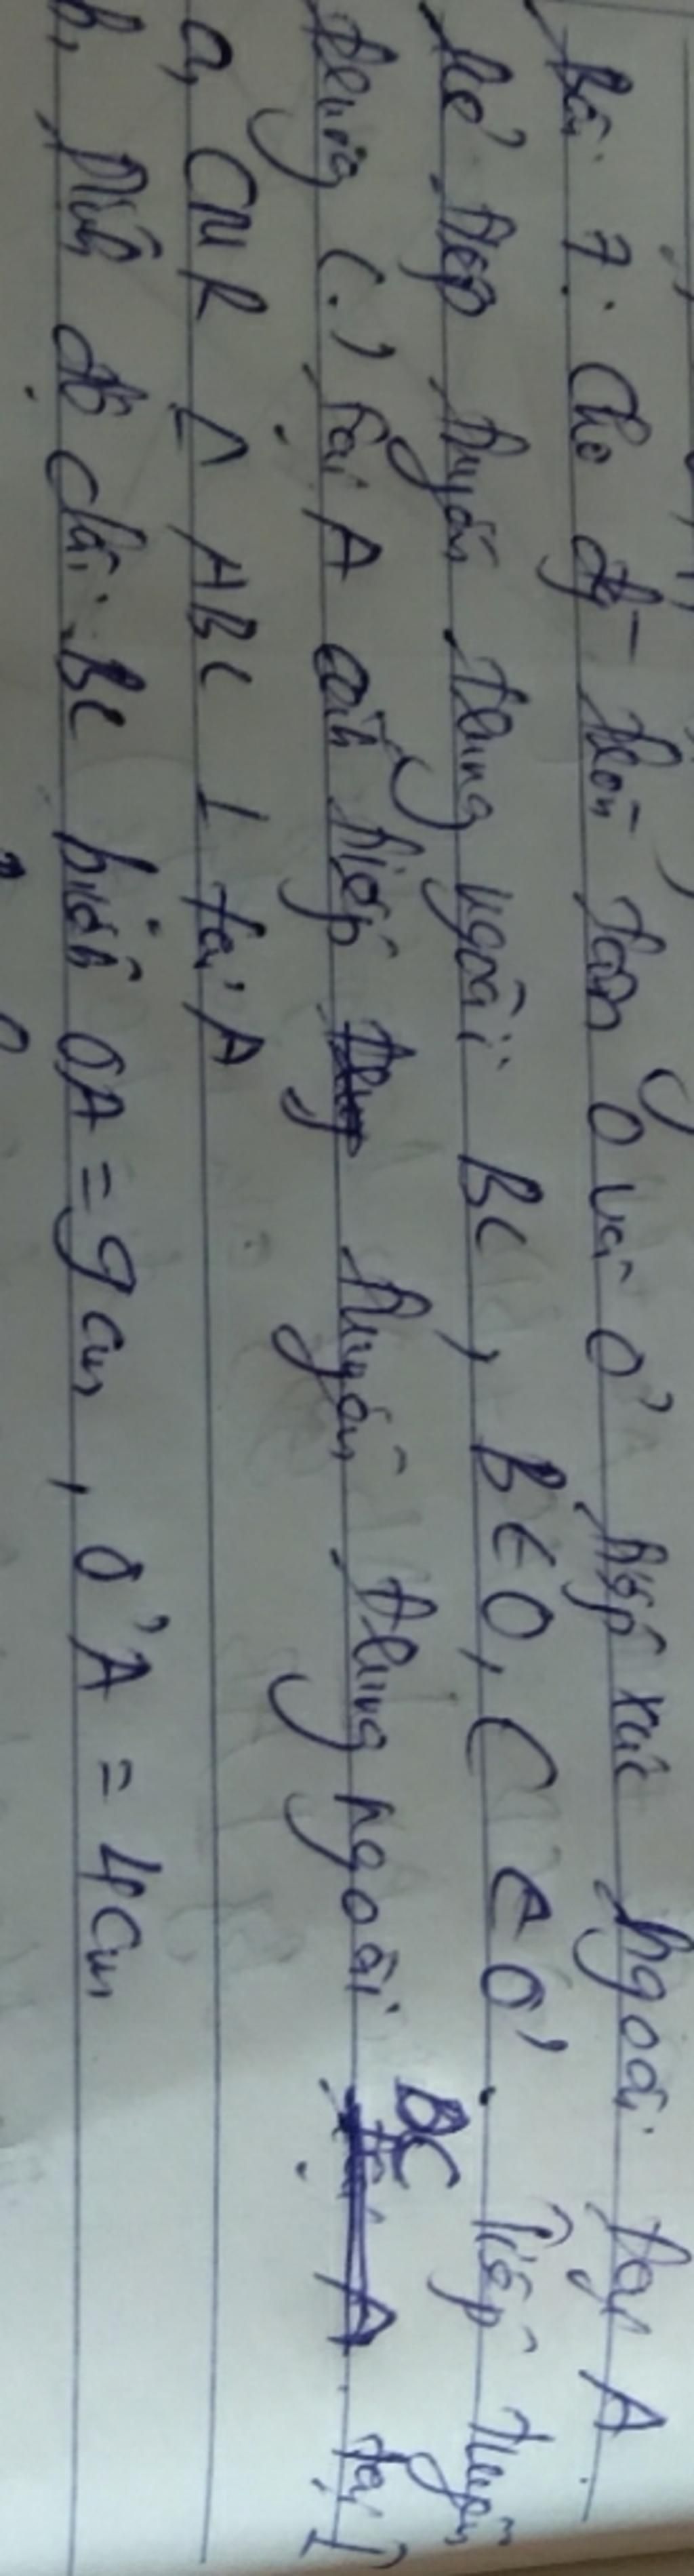 Bài 7: Cho đg tròn tâm O và O' tiếp xúc ngoài tại A.
kẻ tiếp tuyến chung ngoài BC, B ∈ O, C ∈ O'. Tiếp tuyến
chung (.) tại A cắt tiếp tuyến chung ngoài BC tại I
a, CMR Δ ABC ⊥ tại A
b, Tính độ dài BC biết OA = 9cm, O'A = 4cm